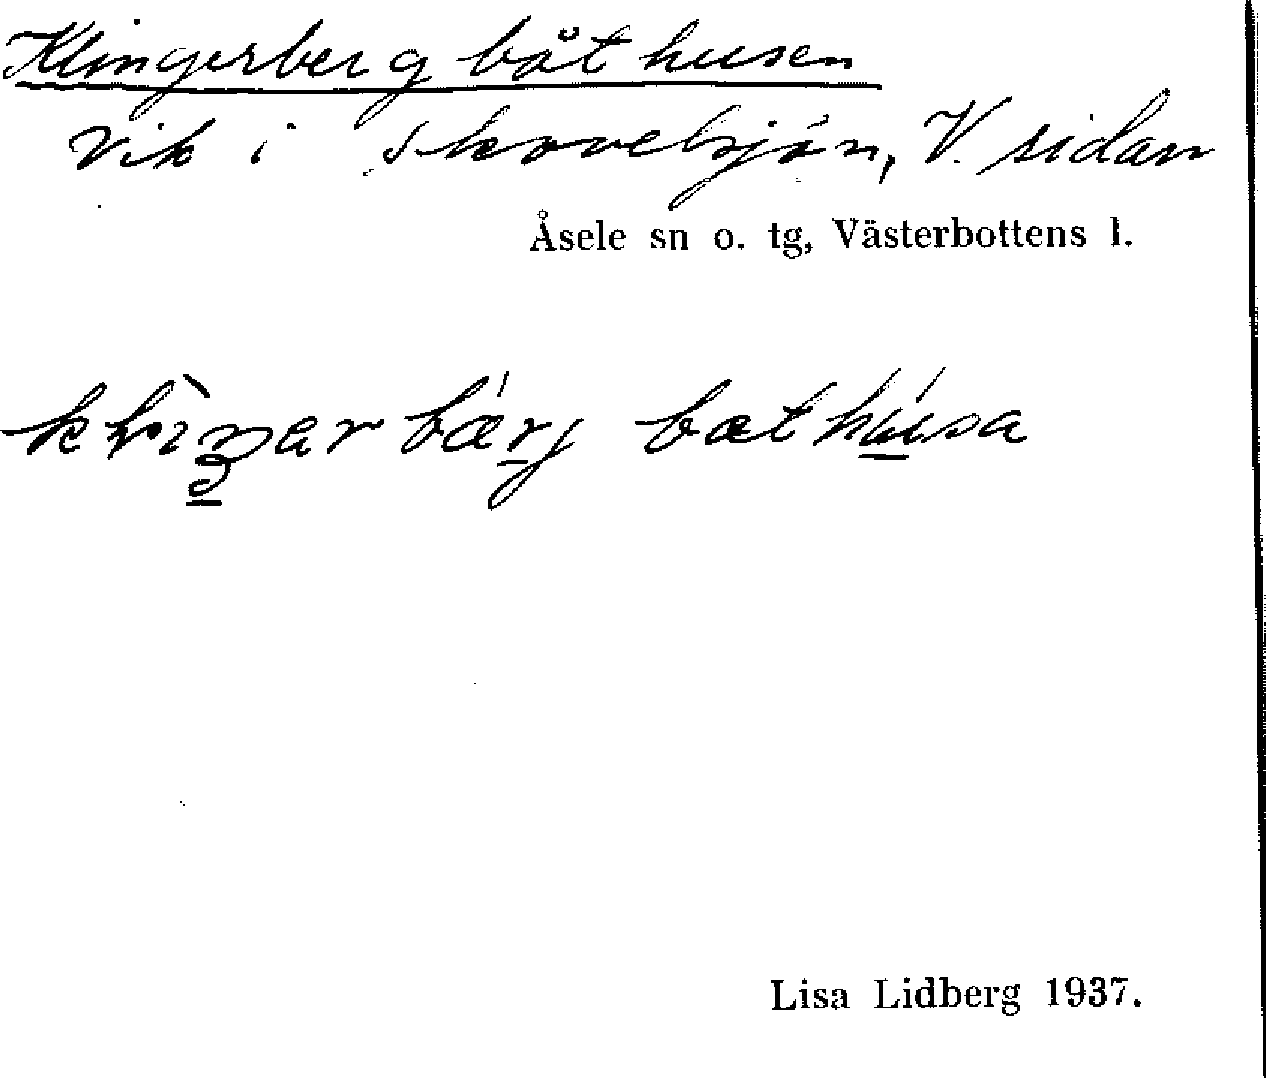 Klingerberg båthusen
vik i Skovelsjön, V. sidan
Åsele sn o. tg, Västerbottens l.
bæthúsa
Lisa Lidberg 1937.